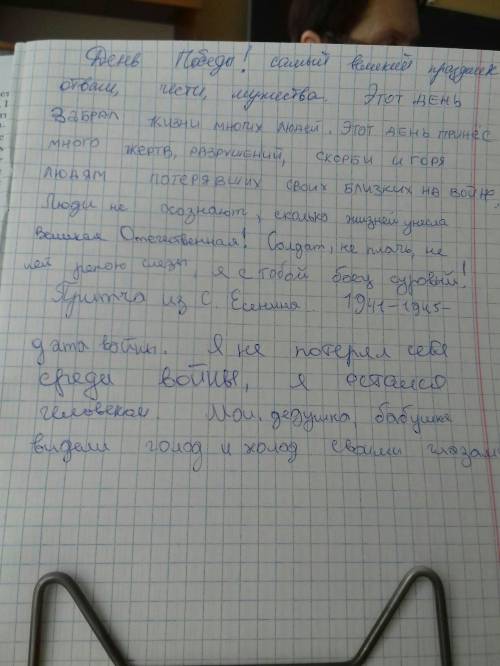 День Победы! самый великий праздник
отваги, чести, мужества. Этот день
забрал жизни многих людей. Этот день принёс
много жертв, разрушений, скорби и горя
людям потерявших своих близких на войне.
Люди не осознают, сколько жизней унесла
Великая Отечественная! Солдат, не плачь, не
лей рекою слезы, я с тобой боец суровый!
Притча из С. Есенина. 1941-1945-
дата войны. Я не потерял себя
среди войны, я остался
человеком. Мои дедушка, бабушка
видели голод и холод своими глазам